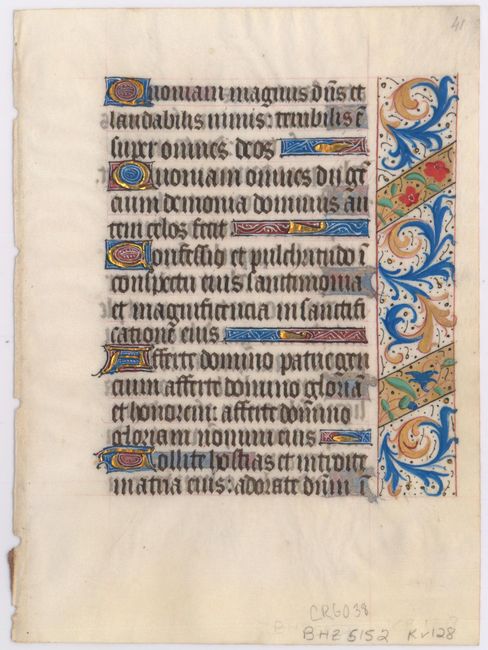 41
Quoniam magnus dn̄s et
laudabilis nimis: terribilis ē
super omnes deos
Quoniam omnes dii gē
cium demonia dominus au
tem celos fecit
Confessio et pulchritudo ī
conspectu eius sanctimonia
et magnificencia in sanctifi
catione eius
Afferte domino patrie gen
cium afferte domino gloriā
et honorem: afferte domino
gloriam nomini eius
Tollite hostias et introite
in atria eius: adorate dn̄m ī
CR6038
BHZ5152 Kv128